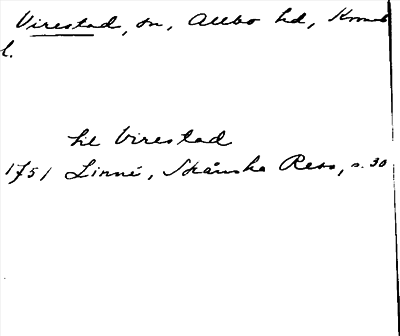 Virestad, sn, Allbo hd, Kronob
l.
hil Virestad
1751 Linné, Skånska Resa, s. 30